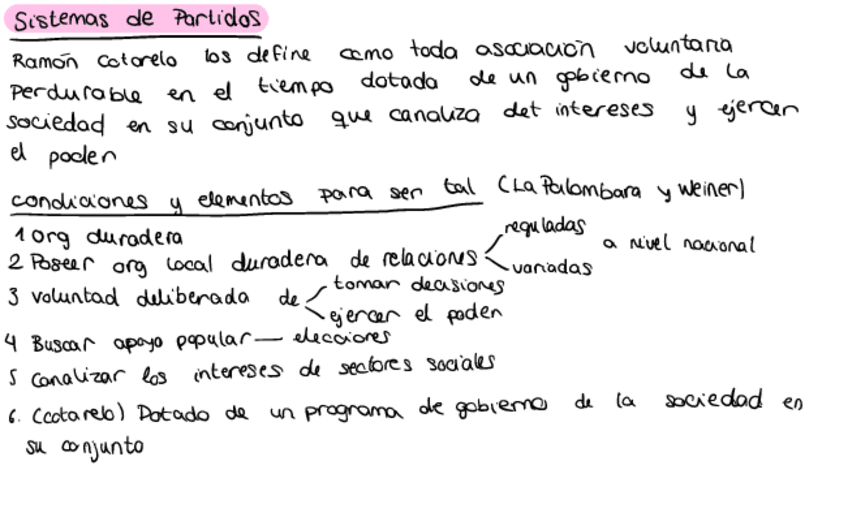 Sistemas de Partidos
Ramón Cotarelo los define como toda asociación voluntaria
perdurable en el tiempo dotada de un gobierno de la
sociedad en su conjunto que canaliza det intereses y ejercer
el poder
condiciones y elementos para ser tal (La Palombara y Weiner)
1 org duradera
2 Poseer org local duradera de relaciones reguladas variadas a nivel nacional
3 voluntad deliberada de tomar decisiones ejercer el poder
4 Buscar apoyo popular — elecciones
5 Canalizar los intereses de sectores sociales
6. (Cotarelo) Dotado de un programa de gobierno de la sociedad en
su conjunto